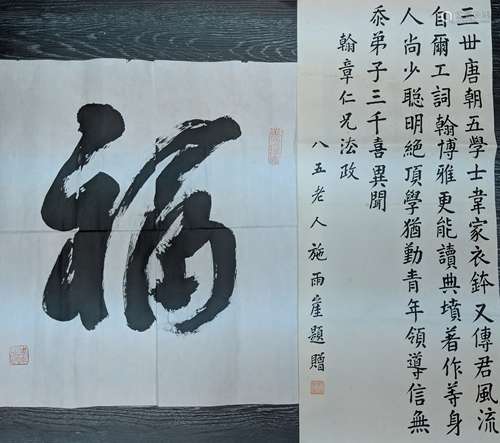 三世唐朝五學士韋家衣鉢又傳君風流
自爾工詞翰博雅更能讀典墳著作等身
人尚少聰明絕頂學猶勤青年領導信無
忝弟子三千喜異聞
翰章仁兄法政
八五老人施雨崖題贈
福